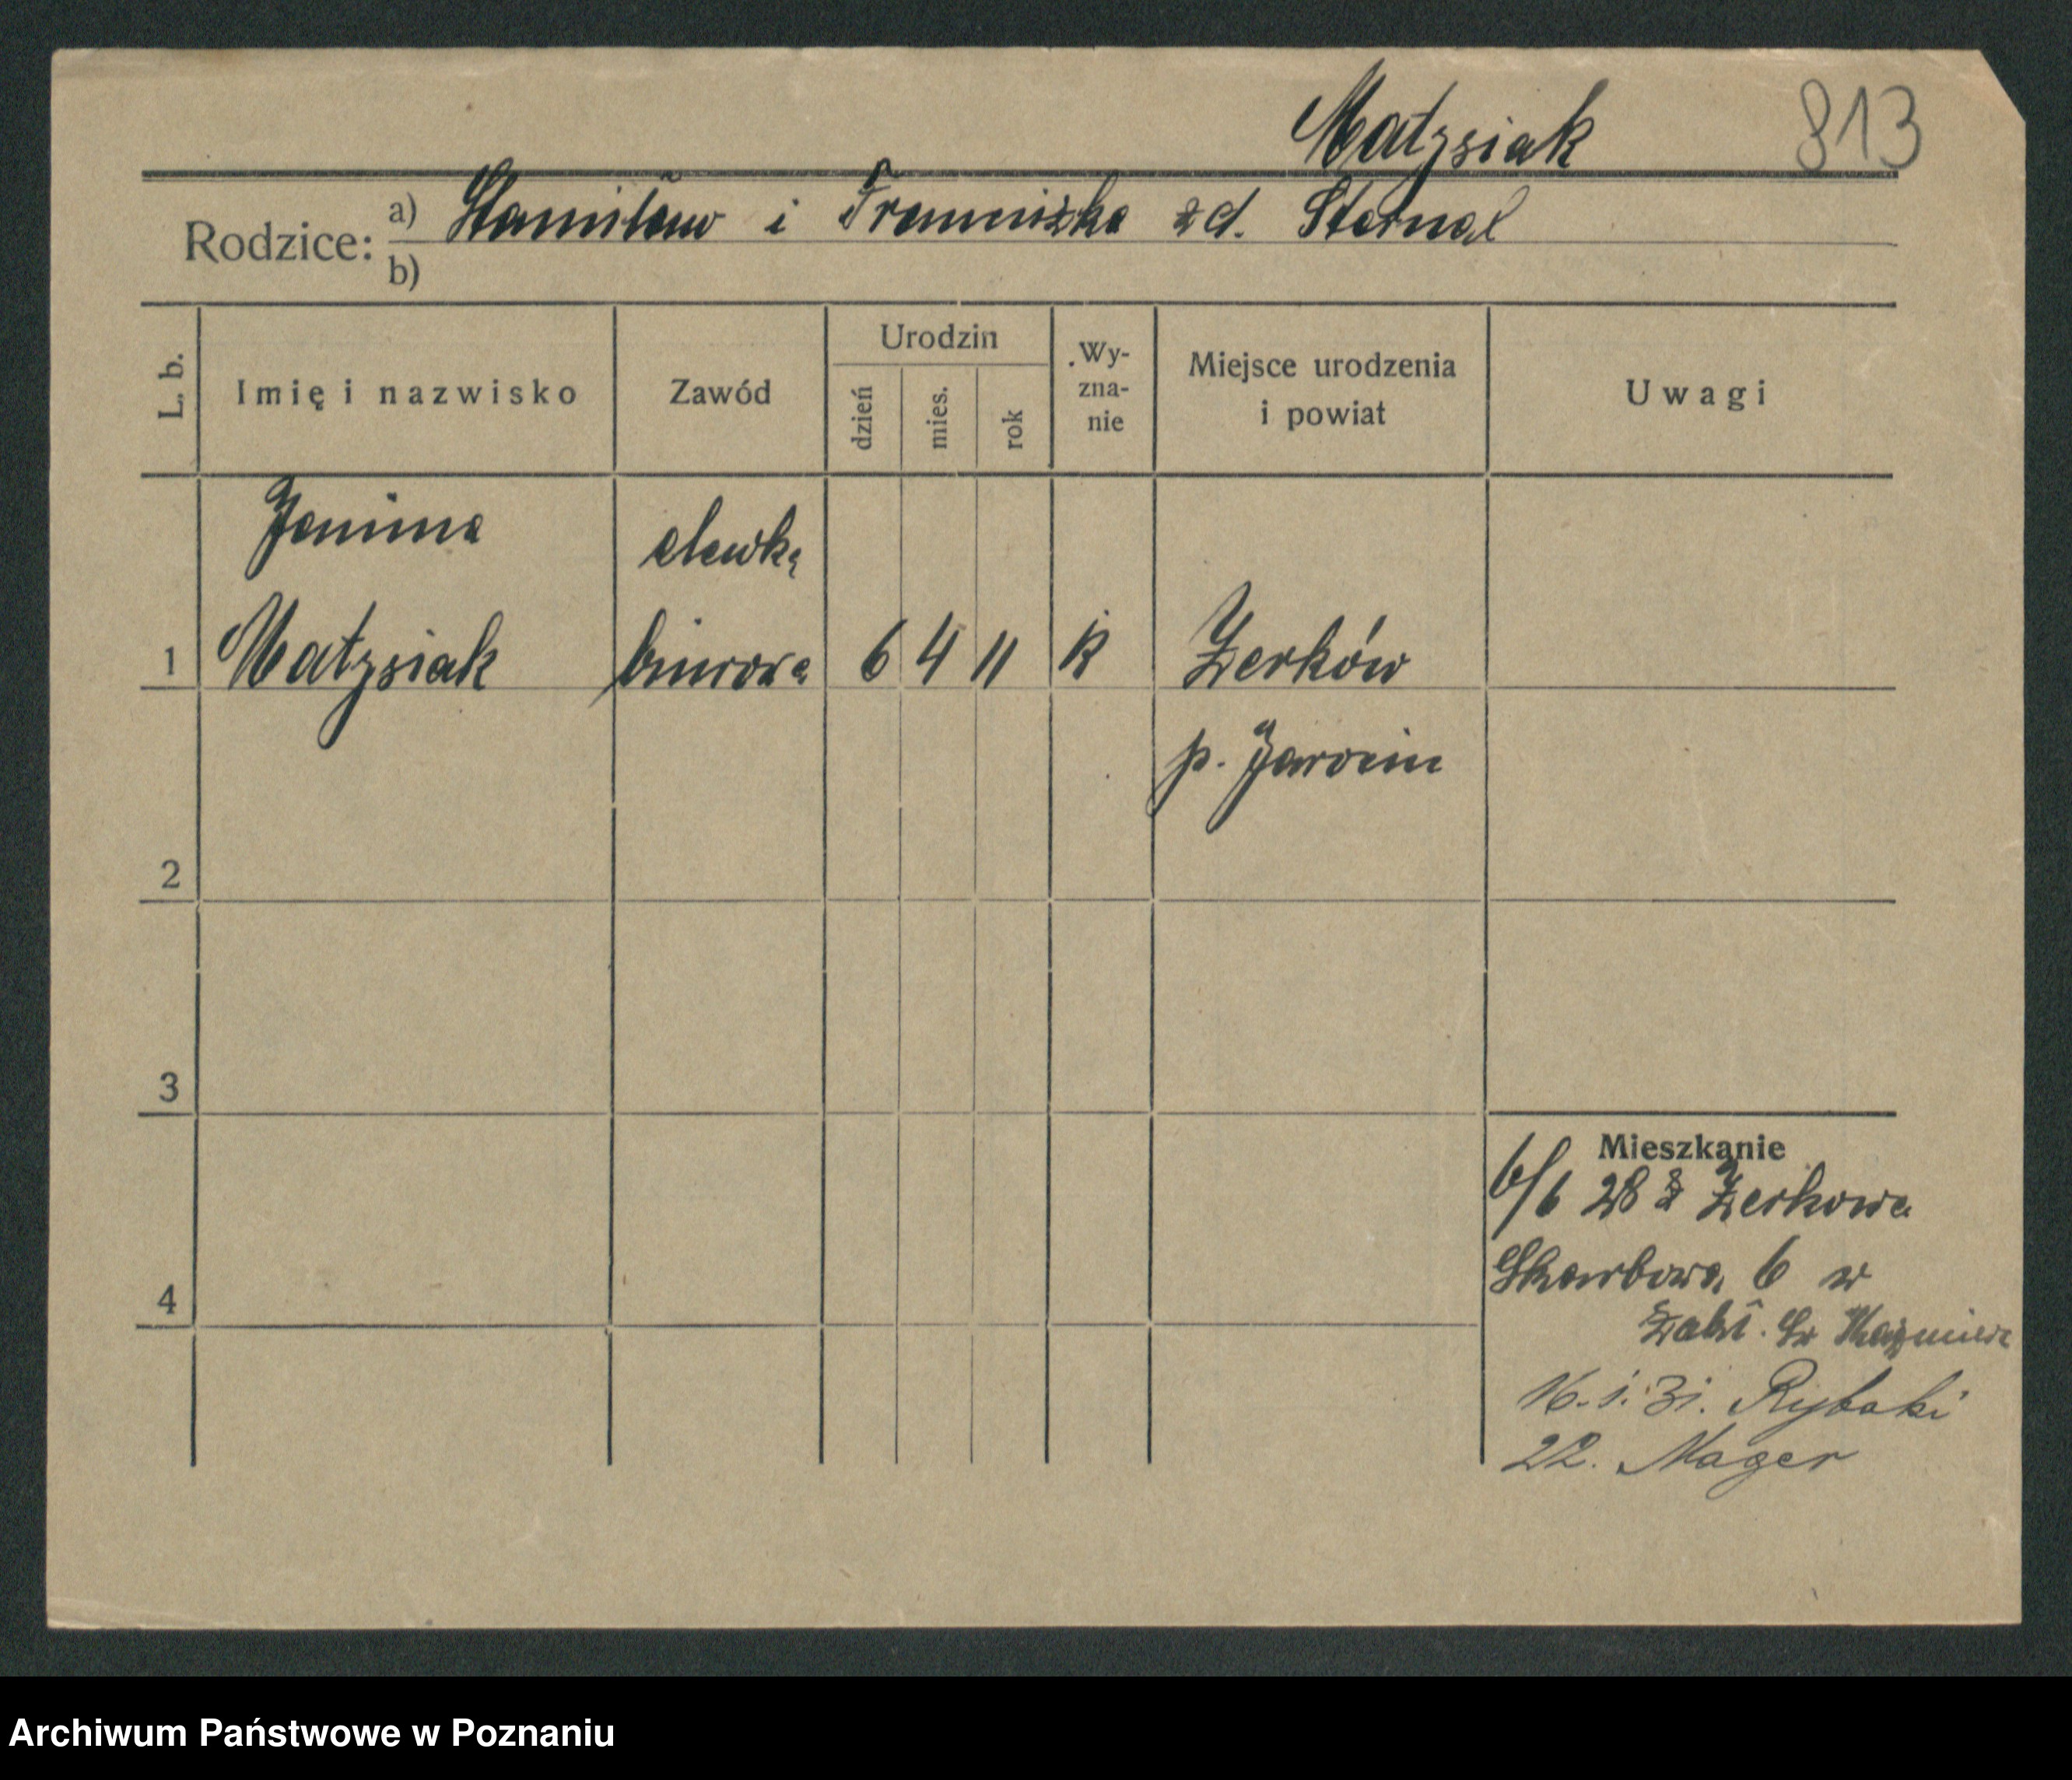 Matysiak 813
Rodzice: a) Stanisław i Franciszka zd. Sternal
b)
L. b. Imię i nazwisko Zawód Urodzin dzień mies. rok Wyznanie Miejsce urodzenia i powiat Uwagi
Janina elewka
1 Matysiak biurowa 6 4 11 k Żerków
p. Jarocin
2
3
Mieszkanie
6/6 28 z Żerkowa
Skarbowa 6 w
4
Zakł. św
16.1.31. Rybaki
22. Mager
Archiwum Państwowe w Poznaniu